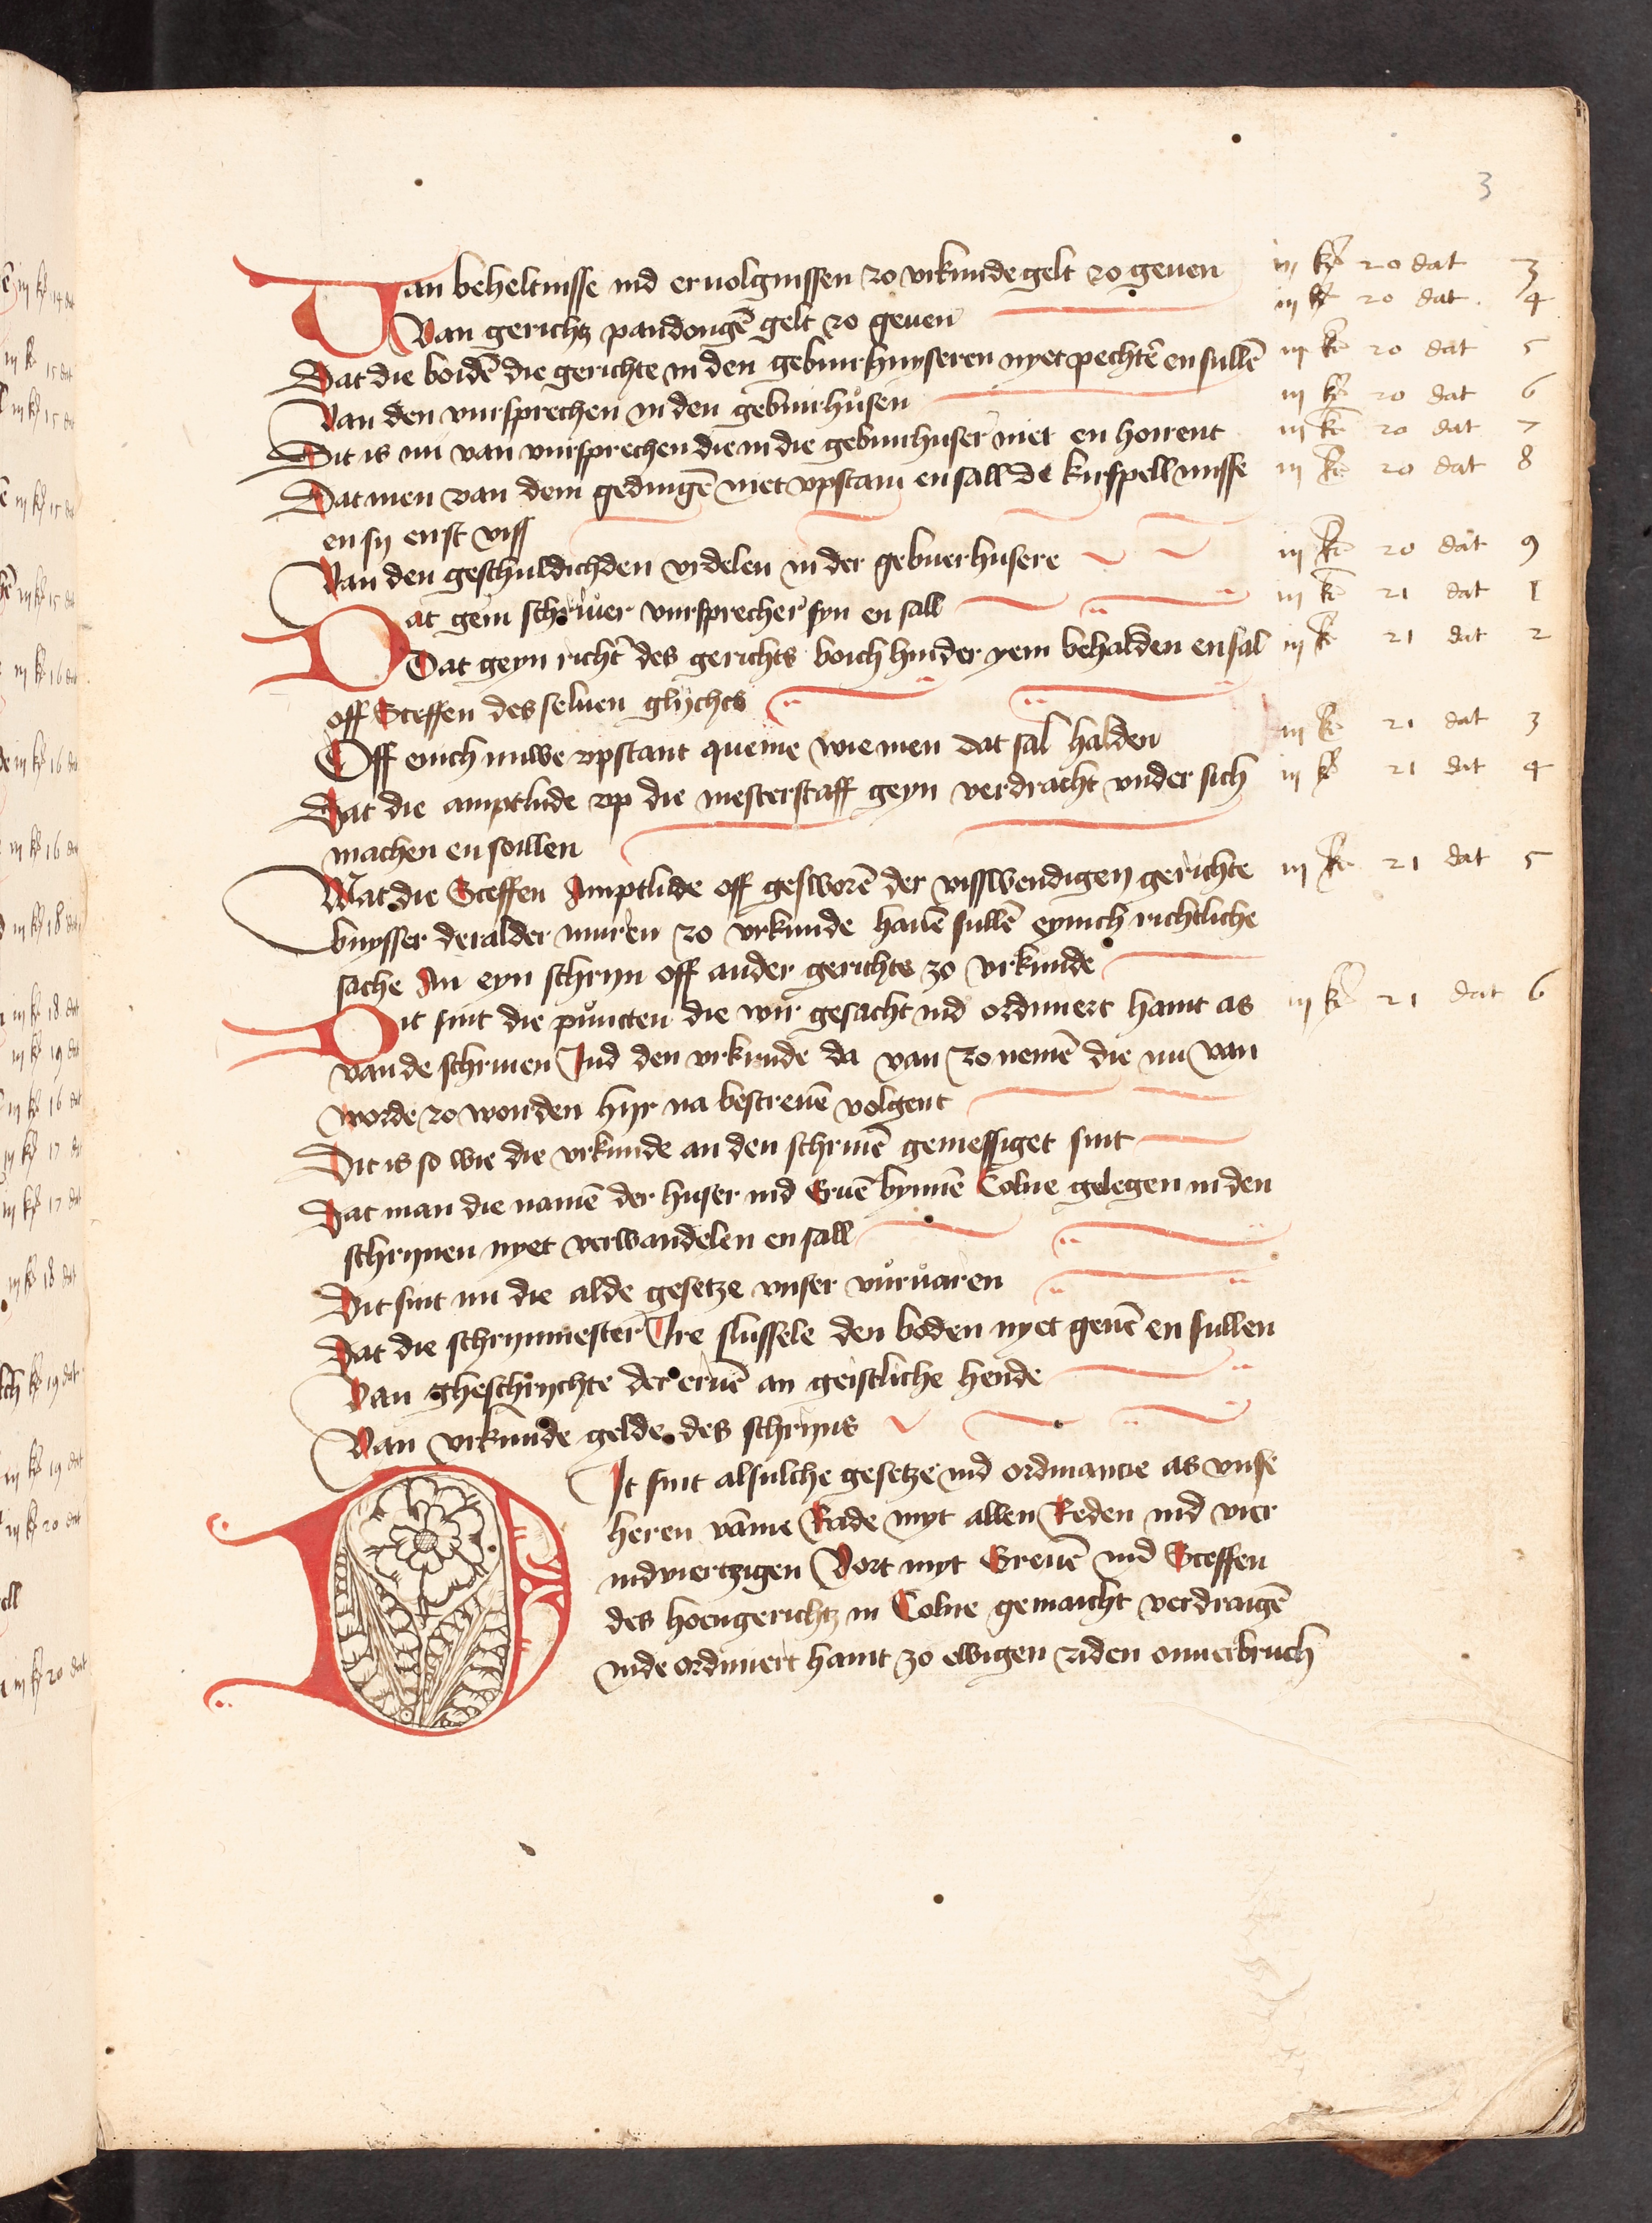 3
Van beheltnisse ind eruolgnissen zo vrkunde gelt zo geuen iij kē 20 dat 3
Van gerichtz pandongē gelt zo geuen iij kē 20 dat 4
Dat die boidē die gerichte in den gebuirhuyseren nyet pechtē en sullē iij kē 20 dat 5
Van den vursprechen in den gebuirhusen iij kē 20 dat 6
Dit is nu van vursprechen die in die gebuirhuser niet en horrent iij kē 20 dat 7
Dat men van dem gedingē niet vpstain en sall de kirspell misse iij kē 20 dat 8
en sy eirst viss
Van den geschuldichden vrdelen in der gebuerhusere iij kē 20 dat 9
Dat gein schriuer vursprecher syn en sall iij kē 21 dat 1
Dat geyn richter des gerichts boich hinder yem behalden en sal iij kē 21 dat 2
off Sceffen des seluen glychs
Off enich nuwe vpstant queme wie men dat sal halden iij kē 21 dat 3
Dat die amptlude vp die mesterstaff geyn verdracht vnder sich iij kē 21 dat 4
machen en soillen
Wat die Sceffen Amptlude off gesworē der visswendigen gerichte iij kē 21 dat 5
buysser der alder muren zo vrkunde hauē sullē eynich richtliche
sache An eyn schryn off ander gerichts zo vrkunde
Dit sint die puncten die wir gesacht ind ordiniert haint as iij kē 21 dat 6
van de schrinen Ind den vrkunde da van zo nemē die nu van
worde zo worden hyr na bescreuē volgent
Dit is so wie die vrkunde an den schrinē gemessiget sint
Dat man die namē der huser ind Eruē bynnē Colne gelegen in den
schrynen nyet verwandelen en sall
Dit sint nu die alde gesetze vnser vuruaren
Dat die schrynmester Ire slussele den boden nyet geuē en sullen
Van gheschrychte der eruē an geistliche hende
Van vrkunde gelde des schryns
Dit sint alsulche gesetze ind ordinancie as vnse
heren vāme Rade myt allen Reden ind vier
indviertzigen Vort myt Greuē ind Sceffen
des hoengerichtz in Colne gemaicht verdragē
inde ordiniert haint zo ewigen ziden onuerbruch